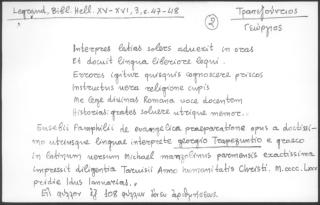 Legrand, Bibl. Hell. XV-XVI, 3, σ. 47-48
② Τραπεζούντιος
Γεώργιος
Interpres latias solers aduexit in oras
Et docuit lingua liberiore loqui.
Errores igitur quisquis cognoscere priscos
Instructus uera religione cupis
Me lege divinas Romana voce docentem
Historias: grates soluere utrique memor..
Eusebii Pamphilii de evangelica praeparatione opus a doctissi-
mo utriusque linguae interprete georgio Trapezuntio e graeco
in latinum uersum Michael manzolinus parmensis exactissima
impressit diligentia Taruisii Anno humanitatis Christi. M.cccc.
pridie Idus Ianuarias..
Εἰς φύλλον ἐξ 108 φύλλων ἄνευ ἀριθμήσεως.